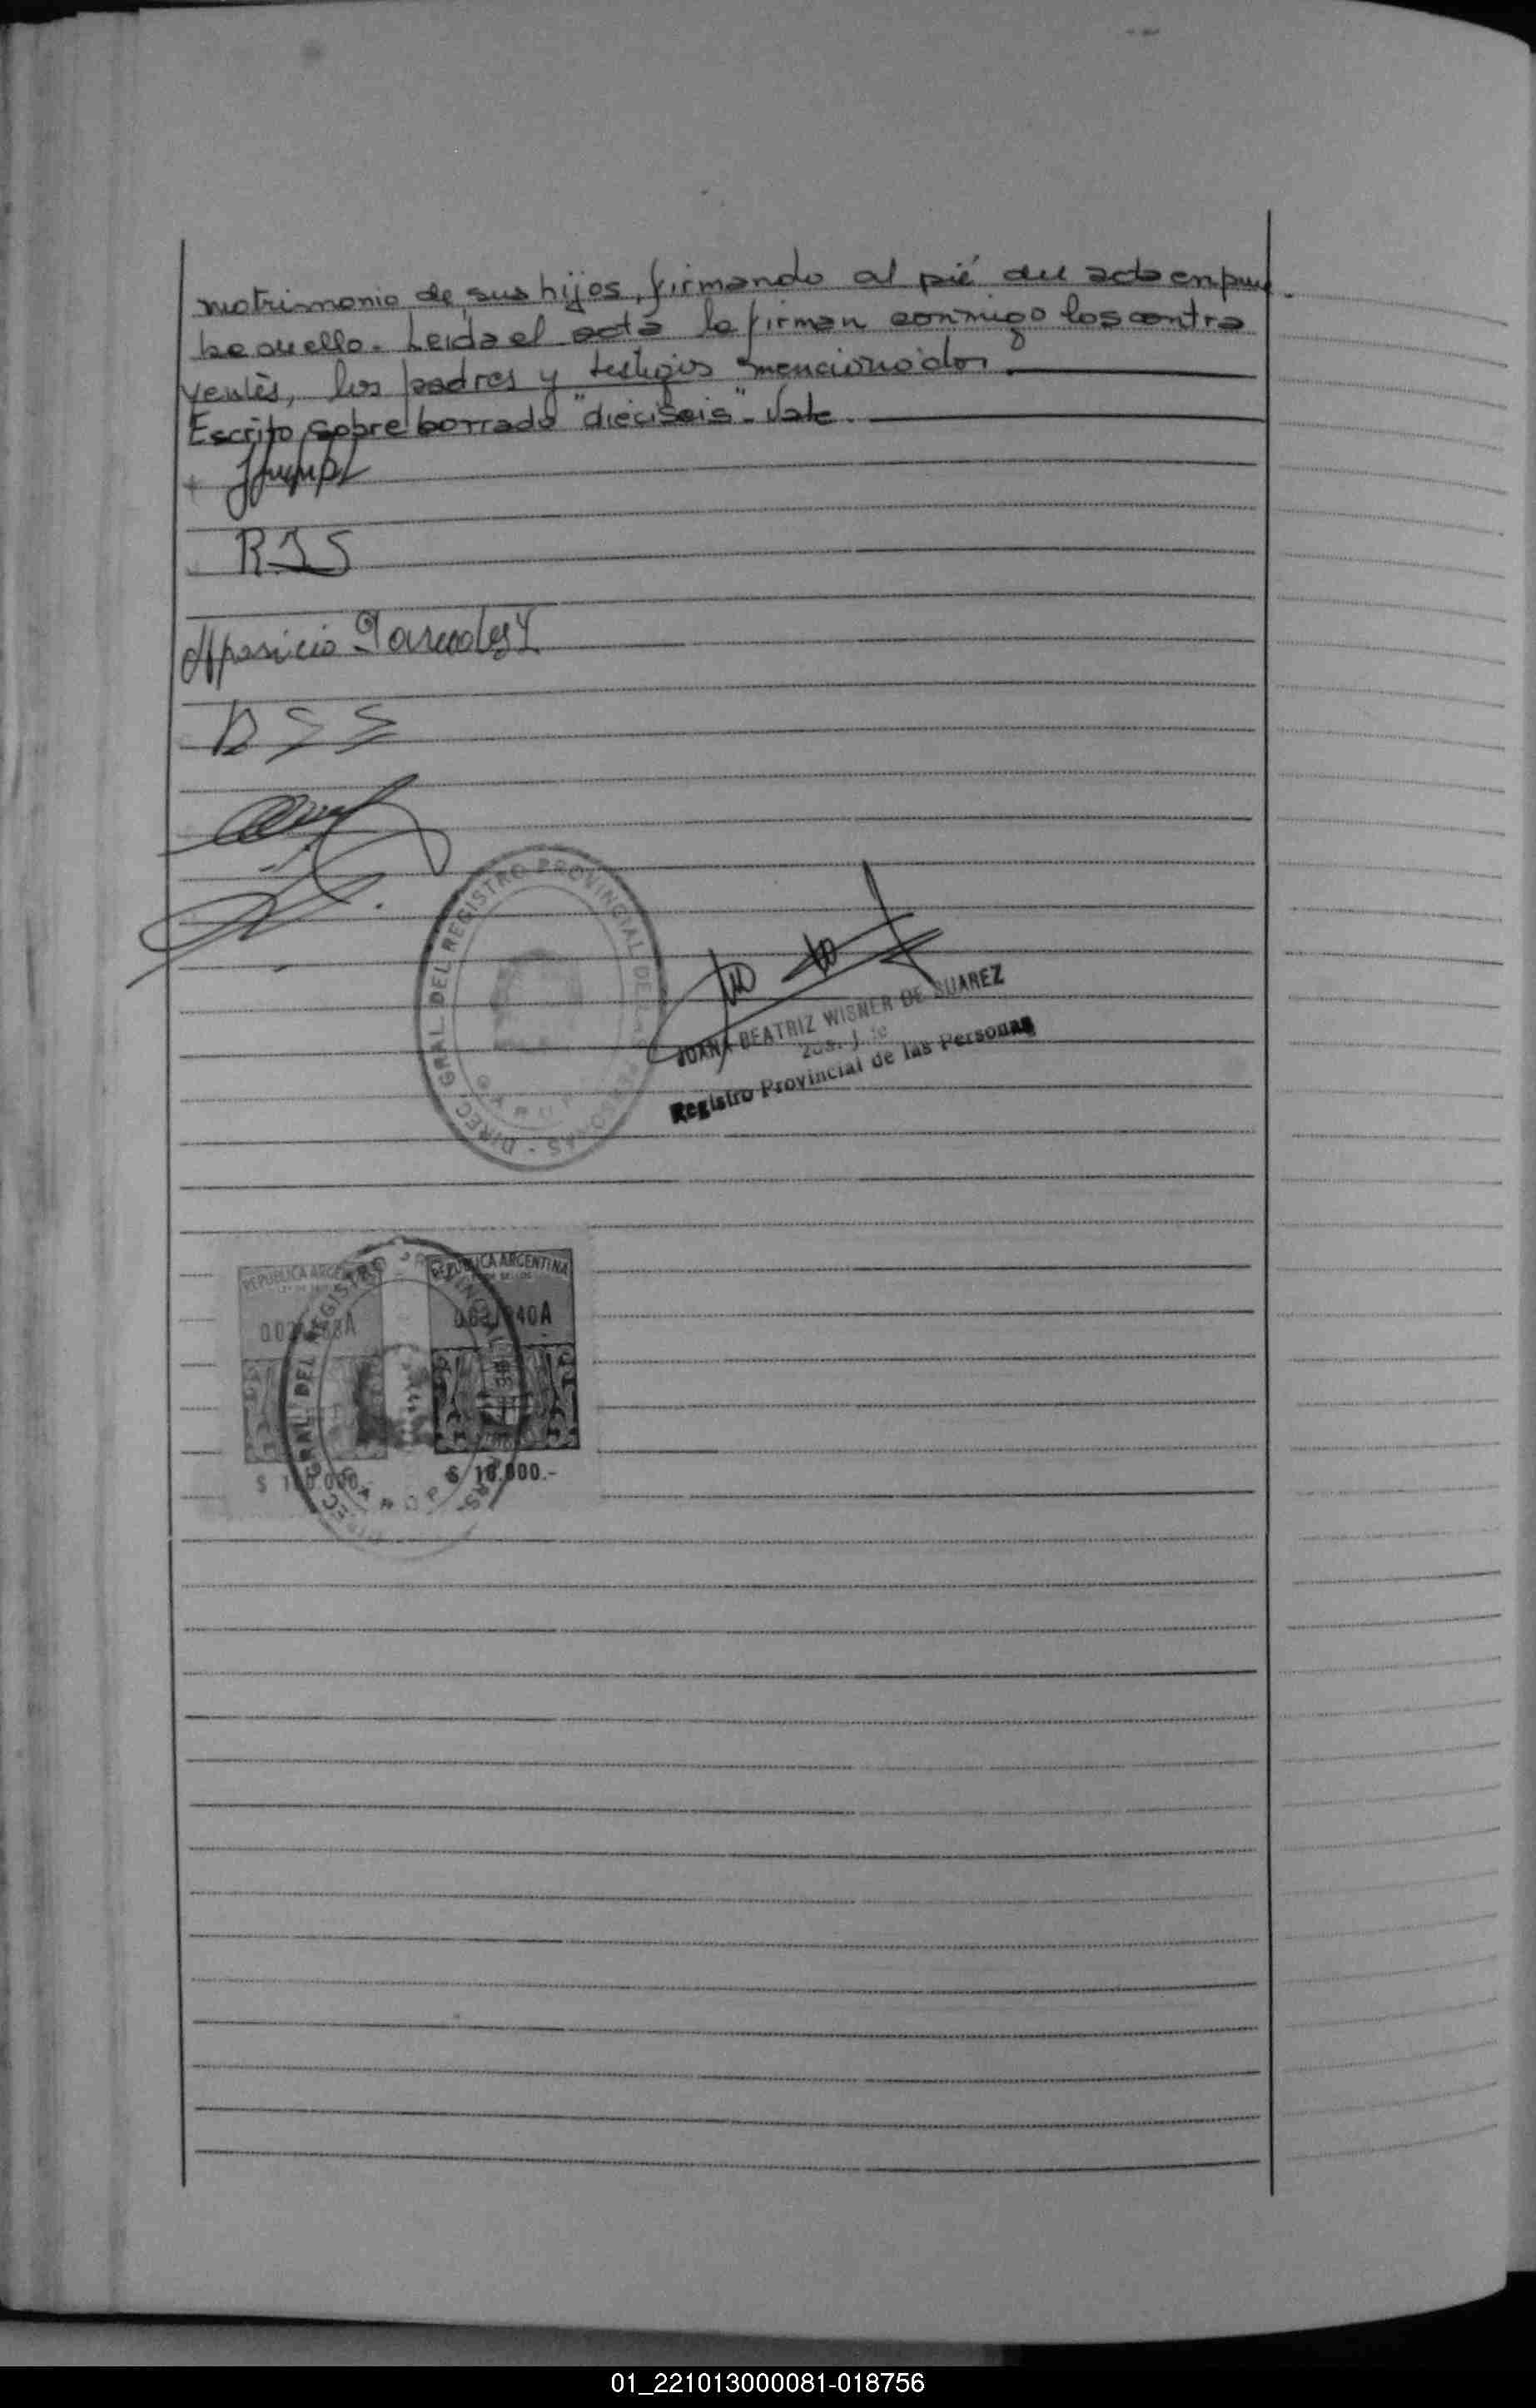 matrimonio de sus hijos, firmando al pié del acta en prue
ba de ello. Leída el acta la firman conmigo los contra
yentes, los padres y testigos mencionados.
Escrito sobre borrado "dieciseis". Vale.
R.J.S
Aparicio
DIREC. GRAL. DEL REGISTRO PROVINCIAL DE LAS PERSONAS
JUANA BEATRIZ WISNER DE SUAREZ
Registro Provincial de las Personas
REPUBLICA ARGENTINA
REPUBLICA ARGENTINA
$ 100.000.-
$ 10.000.-
GRAL. DEL REGISTRO
01_221013000081-018756